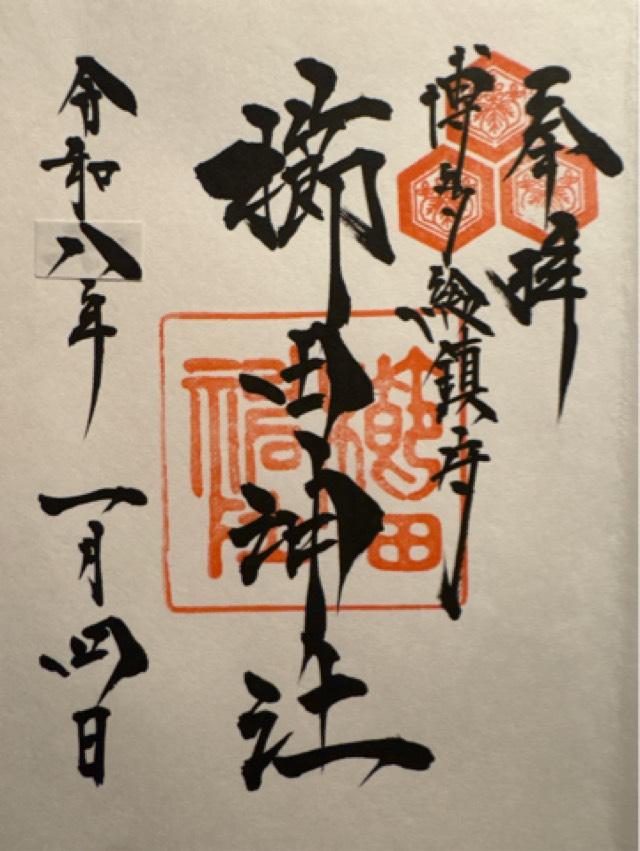 奉拝
博多総鎮守
櫛田神社
令和八年 一月四日
櫛田
神社